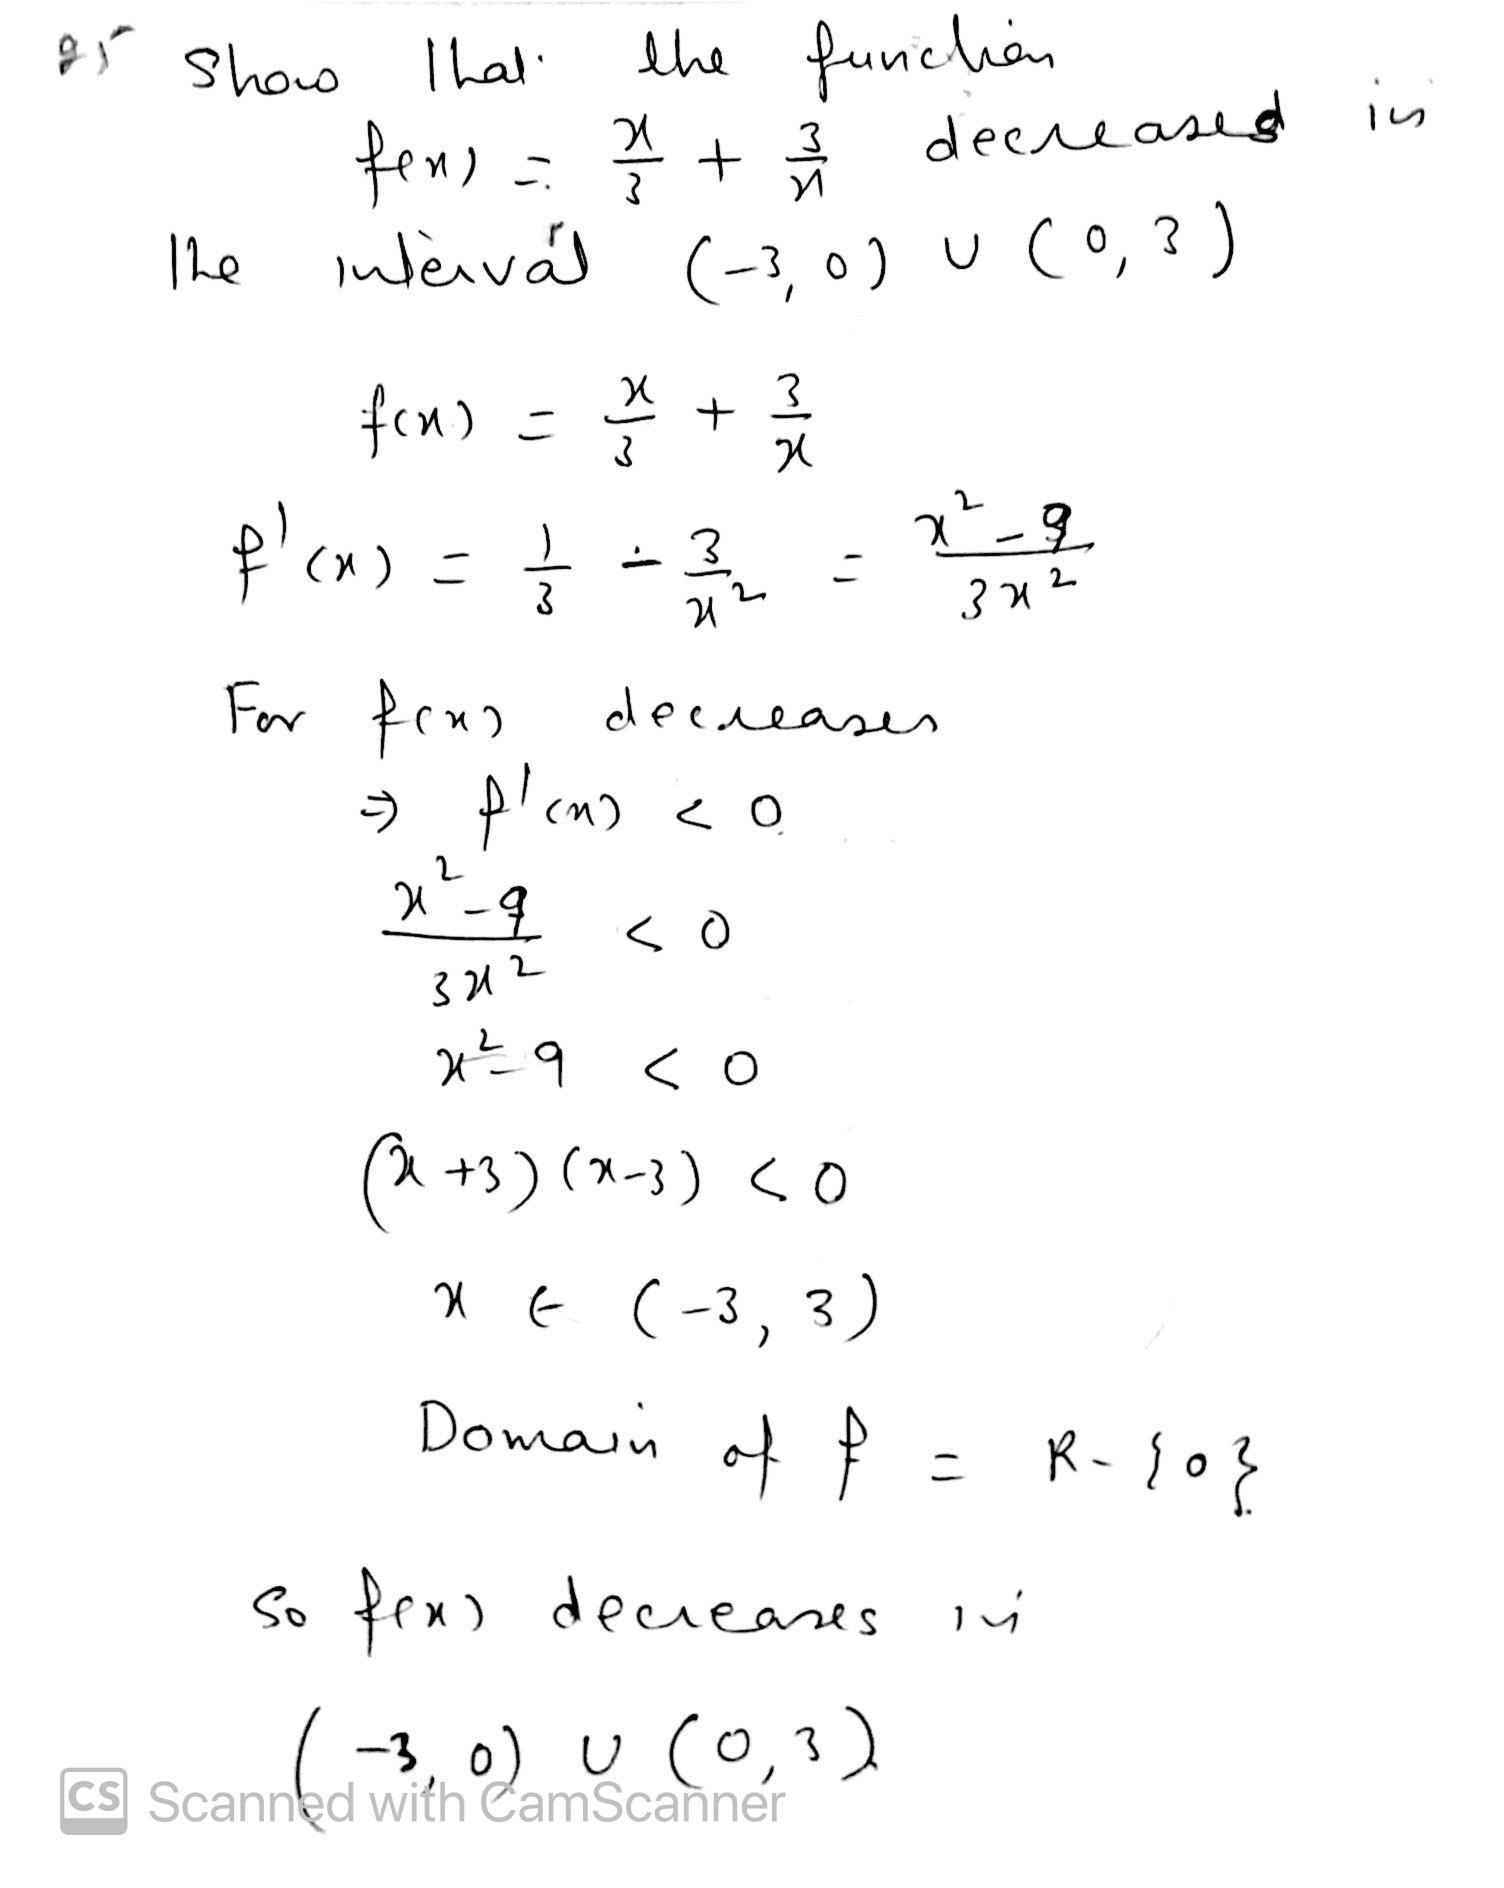 25 Show that the function
f(x) = x/3 + 3/x decreased in
the interval (-3, 0) ∪ (0, 3)
f(x) = x/3 + 3/x
f'(x) = 1/3 - 3/x² = x² - 9 / 3x²
For f(x) decreases
⇒ f'(x) < 0
x² - 9 / 3x² < 0
x² - 9 < 0
(x + 3) (x - 3) < 0
x ∈ (-3, 3)
Domain of f = R - {0}
So f(x) decreases in
(-3, 0) ∪ (0, 3)
CS Scanned with CamScanner